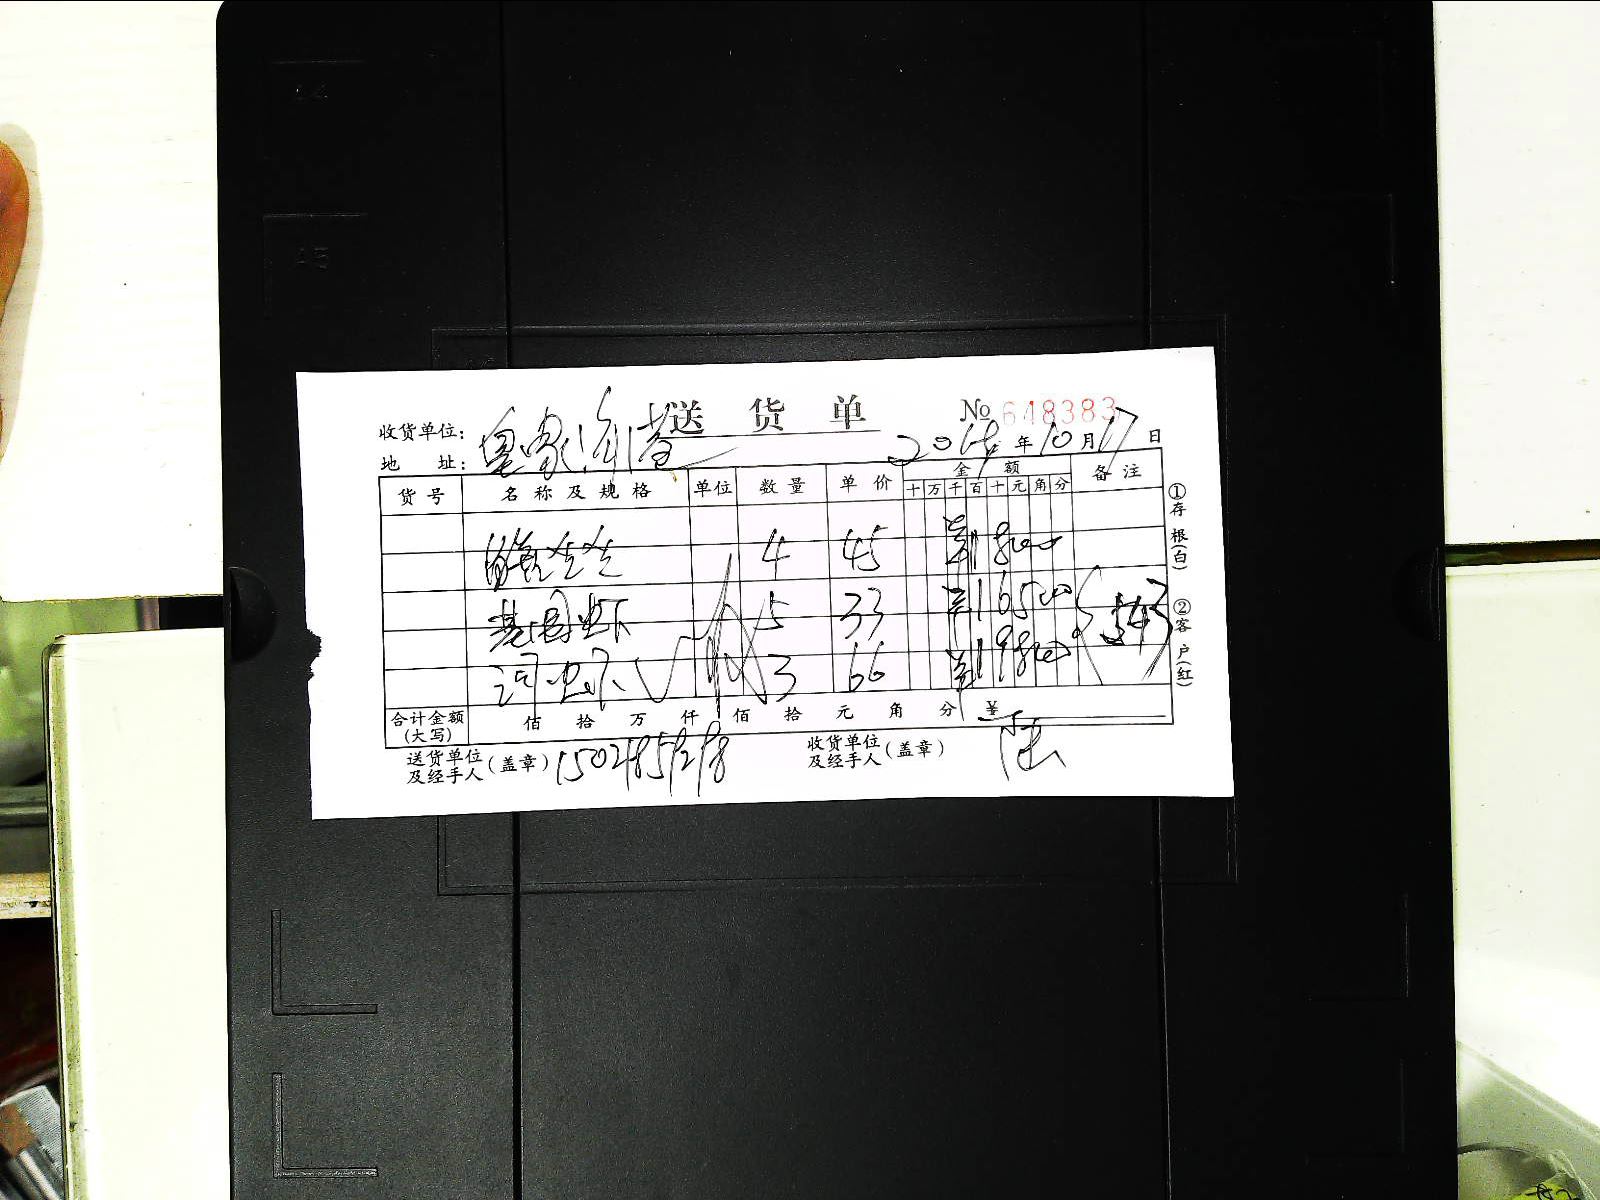 送货单
No 648383
收货单位：
地 址：
年10月17日
货号 名称及规格 单位 数量 单价 金额 备注
十万千百十元角分
4 45 18000
基围虾 5 33 16500
河虾 3 66 19800
543
合计金额(大写) 佰拾万仟佰拾元角分 ¥
送货单位及经手人(盖章)
收货单位及经手人(盖章)
①存根(白) ②客户(红)
14
15